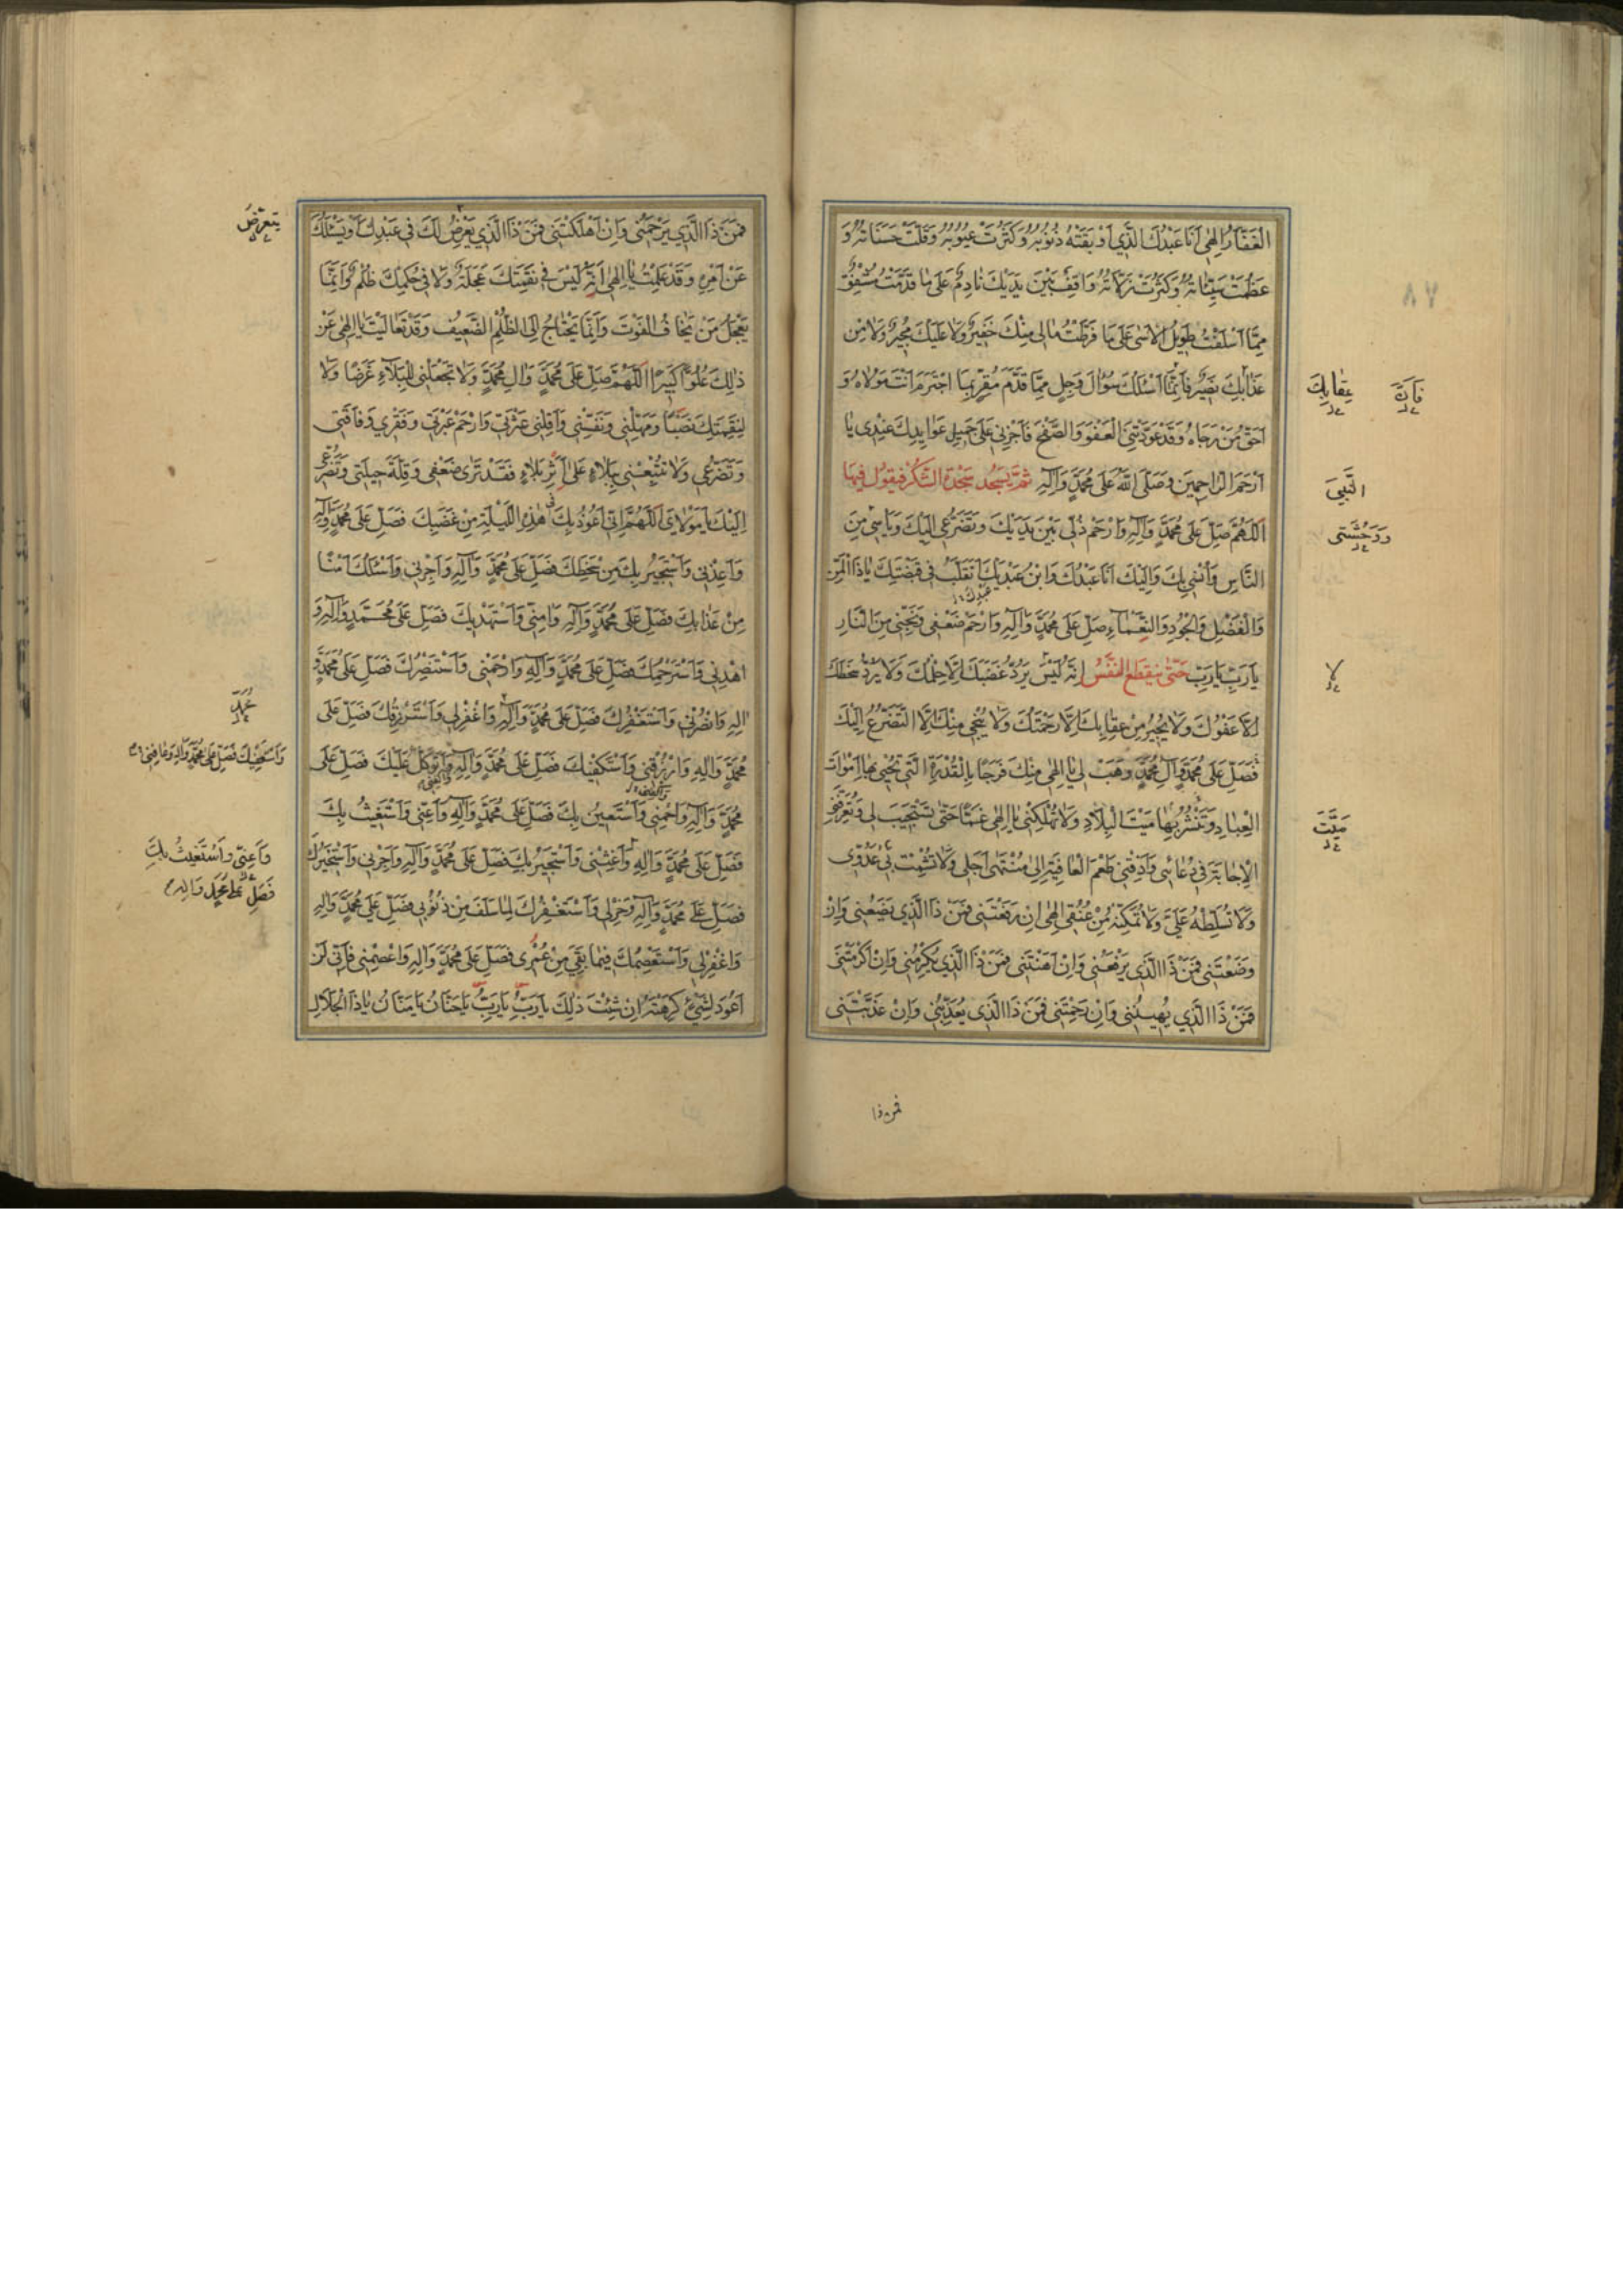 الغَفَّارُ اِلٰهِي اَنَا عَبْدُكَ الَّذِي اَوْبَقَتْهُ ذُنُوبُهُ وَكَثُرَتْ عُيُوبُهُ وَقَلَّتْ حَسَنَاتُهُ وَ
عَظُمَتْ سَيِّئَاتُهُ وَكَثُرَتْ زَلَّاتُهُ وَاقِفٌ بَيْنَ يَدَيْكَ نَادِمٌ عَلٰى مَا قَدَّمْتُ مُشْفِقٌ
مِمَّا اَسْلَفْتُ طَوِيلُ الْاَسٰى عَلٰى مَا فَرَّطْتُ مَالِي مِنْكَ خَفِيرٌ وَلَا عَلَيْكَ مُجِيرٌ وَلَا مِنْ
عَذَابِكَ نَصِيرٌ فَاِنَّمَا اَسْئَلُكَ سُؤَالَ وَجِلٍ مِمَّا قَدَّمَ مُقِرٍّ بِمَا اجْتَرَمَ اَنْتَ مَوْلَاهُ وَ
عِقَابِكَ
فَاِنَّ
اَحَقُّ مَنْ رَجَاهُ وَقَدْ عَوَّدْتَنِي الْعَفْوَ وَالصَّفْحَ فَاَجْرِنِي عَلٰى جَمِيلِ عَوَايِدِكَ عِنْدِي يَا
اَرْحَمَ الرَّاحِمِينَ وَصَلَّى اللّٰهُ عَلٰى مُحَمَّدٍ وَآلِهِ ثُمَّ يَسْجُدُ سَجْدَةَ الشُّكْرِ فَيَقُولُ فِيهَا
النَّبِيِّ
اَللّٰهُمَّ صَلِّ عَلٰى مُحَمَّدٍ وَآلِهِ وَارْحَمْ ذُلِّي بَيْنَ يَدَيْكَ وَتَضَرُّعِي اِلَيْكَ وَيَاْسِي مِنَ
وَوَحْشَتِي
النَّاسِ وَاُنْسِي بِكَ وَاِلَيْكَ اَنَا عَبْدُكَ وَابْنُ عَبْدَيْكَ اَتَقَلَّبُ فِي قَبْضَتِكَ يَا ذَا الْمَنِّ
وَالْفَضْلِ وَالْجُودِ وَالنَّعْمَاءِ صَلِّ عَلٰى مُحَمَّدٍ وَآلِهِ وَارْحَمْ ضَعْفِي وَنَجِّنِي مِنَ النَّارِ
يَا رَبِّ يَا رَبِّ حَتّٰى يَنْقَطِعَ النَّفَسُ اِنَّهُ لَيْسَ يَرُدُّ غَضَبَكَ اِلَّا حِلْمُكَ وَلَا يَرُدُّ سَخَطَكَ
لا
اِلَّا عَفْوُكَ وَلَا يُجِيرُ مِنْ عِقَابِكَ اِلَّا رَحْمَتُكَ وَلَا يُنْجِي مِنْكَ اِلَّا التَّضَرُّعُ اِلَيْكَ
فَصَلِّ عَلٰى مُحَمَّدٍ وَآلِ مُحَمَّدٍ وَهَبْ لِي يَا اِلٰهِي مِنْكَ فَرَجًا بِالْقُدْرَةِ الَّتِي تُحْيِي بِهَا اَمْوَاتَ
الْعِبَادِ وَتَنْشُرُ بِهَا مَيْتَ الْبِلَادِ وَلَا تُهْلِكْنِي يَا اِلٰهِي غَمًّا حَتّٰى تَسْتَجِيبَ لِي وَتُعَرِّفَنِي
مَيِّتَ
الْاِجَابَةَ فِي دُعَائِي وَاَذِقْنِي طَعْمَ الْعَافِيَةِ اِلٰى مُنْتَهٰى اَجَلِي وَلَا تُشْمِتْ بِي عَدُوِّي
وَلَا تُسَلِّطْهُ عَلَيَّ وَلَا تُمَكِّنْهُ مِنْ عُنُقِي اِلٰهِي اِنْ رَفَعْتَنِي فَمَنْ ذَا الَّذِي يَضَعُنِي وَاِنْ
وَضَعْتَنِي فَمَنْ ذَا الَّذِي يَرْفَعُنِي وَاِنْ اَهَنْتَنِي فَمَنْ ذَا الَّذِي يُكْرِمُنِي وَاِنْ اَكْرَمْتَنِي
فَمَنْ ذَا الَّذِي يُهِينُنِي وَاِنْ رَحِمْتَنِي فَمَنْ ذَا الَّذِي يُعَذِّبُنِي وَاِنْ عَذَّبْتَنِي
فمن ذا
فَمَنْ ذَا الَّذِي يَرْحَمُنِي وَاِنْ اَهْلَكْتَنِي فَمَنْ ذَا الَّذِي يَعْرِضُ لَكَ فِي عَبْدِكَ اَوْ يَسْئَلُكَ
يَتَعَرَّضُ
عَنْ اَمْرِهِ وَقَدْ عَلِمْتُ يَا اِلٰهِي اَنَّهُ لَيْسَ فِي نَقِمَتِكَ عَجَلَةٌ وَلَا فِي حُكْمِكَ ظُلْمٌ وَاِنَّمَا
يَعْجَلُ مَنْ يَخَافُ الْفَوْتَ وَاِنَّمَا يَحْتَاجُ اِلَى الظُّلْمِ الضَّعِيفُ وَقَدْ تَعَالَيْتَ يَا اِلٰهِي عَنْ
ذٰلِكَ عُلُوًّا كَبِيرًا اَللّٰهُمَّ صَلِّ عَلٰى مُحَمَّدٍ وَآلِ مُحَمَّدٍ وَلَا تَجْعَلْنِي لِلْبَلَاءِ غَرَضًا وَلَا
لِنِقْمَتِكَ نَصَبًا وَمَهِّلْنِي وَنَفِّسْنِي وَاَقِلْنِي عَثْرَتِي وَارْحَمْ عَبْرَتِي وَفَقْرِي وَفَاقَتِي
وَتَضَرُّعِي وَلَا تُتْبِعْنِي بِبَلَاءٍ عَلٰى اَثَرِ بَلَاءٍ فَقَدْ تَرٰى ضَعْفِي وَقِلَّةَ حِيلَتِي وَتَضَرُّعِي
اِلَيْكَ يَا مَوْلَايَ اَللّٰهُمَّ اِنِّي اَعُوذُ بِكَ فِي هٰذِهِ اللَّيْلَةِ مِنْ غَضَبِكَ فَصَلِّ عَلٰى مُحَمَّدٍ وَآلِهِ
وَاَعِذْنِي وَاَسْتَجِيرُ بِكَ مِنْ سَخَطِكَ فَصَلِّ عَلٰى مُحَمَّدٍ وَآلِهِ وَاَجِرْنِي وَاَسْئَلُكَ اَمْنًا
مِنْ عَذَابِكَ فَصَلِّ عَلٰى مُحَمَّدٍ وَآلِهِ وَآمِنِّي وَاَسْتَهْدِيكَ فَصَلِّ عَلٰى مُحَمَّدٍ وَآلِهِ وَ
اهْدِنِي وَاَسْتَرْحِمُكَ فَصَلِّ عَلٰى مُحَمَّدٍ وَآلِهِ وَارْحَمْنِي وَاَسْتَنْصِرُكَ فَصَلِّ عَلٰى مُحَمَّدٍ وَ
آلِهِ وَانْصُرْنِي وَاَسْتَغْفِرُكَ فَصَلِّ عَلٰى مُحَمَّدٍ وَآلِهِ وَاغْفِرْلِي وَاَسْتَرْزِقُكَ فَصَلِّ عَلٰى
مُحَمَّدٍ وَآلِهِ وَارْزُقْنِي وَاَسْتَكْفِيكَ فَصَلِّ عَلٰى مُحَمَّدٍ وَآلِهِ وَاَتَوَكَّلُ عَلَيْكَ فَصَلِّ عَلٰى
مُحَمَّدٍ وَآلِهِ وَاَسْتَعِينُ بِكَ فَصَلِّ عَلٰى مُحَمَّدٍ وَآلِهِ وَاَعِنِّي وَاَسْتَغِيثُ بِكَ
فَصَلِّ عَلٰى مُحَمَّدٍ وَآلِهِ وَاَغِثْنِي وَاَسْتَجِيرُ بِكَ فَصَلِّ عَلٰى مُحَمَّدٍ وَآلِهِ وَاَجِرْنِي وَاَسْتَخِيرُكَ
وَاَعِنِّي وَاَسْتَغِيثُ بِكَ
فَصَلِّ عَلٰى مُحَمَّدٍ وَآلِهِ
فَصَلِّ عَلٰى مُحَمَّدٍ وَآلِهِ وَخِرْلِي وَاَسْتَغْفِرُكَ لِمَا سَلَفَ مِنْ ذُنُوبِي فَصَلِّ عَلٰى مُحَمَّدٍ وَآلِهِ
وَاغْفِرْلِي وَاَسْتَعْصِمُكَ فِيمَا بَقِيَ مِنْ عُمْرِي فَصَلِّ عَلٰى مُحَمَّدٍ وَآلِهِ وَاعْصِمْنِي فَاِنِّي لَنْ
اَعُودَ لِشَيْءٍ كَرِهْتَهُ اِنْ شِئْتَ ذٰلِكَ يَا رَبِّ يَا رَبِّ يَا حَنَّانُ يَا مَنَّانُ يَا ذَا الْجَلَالِ